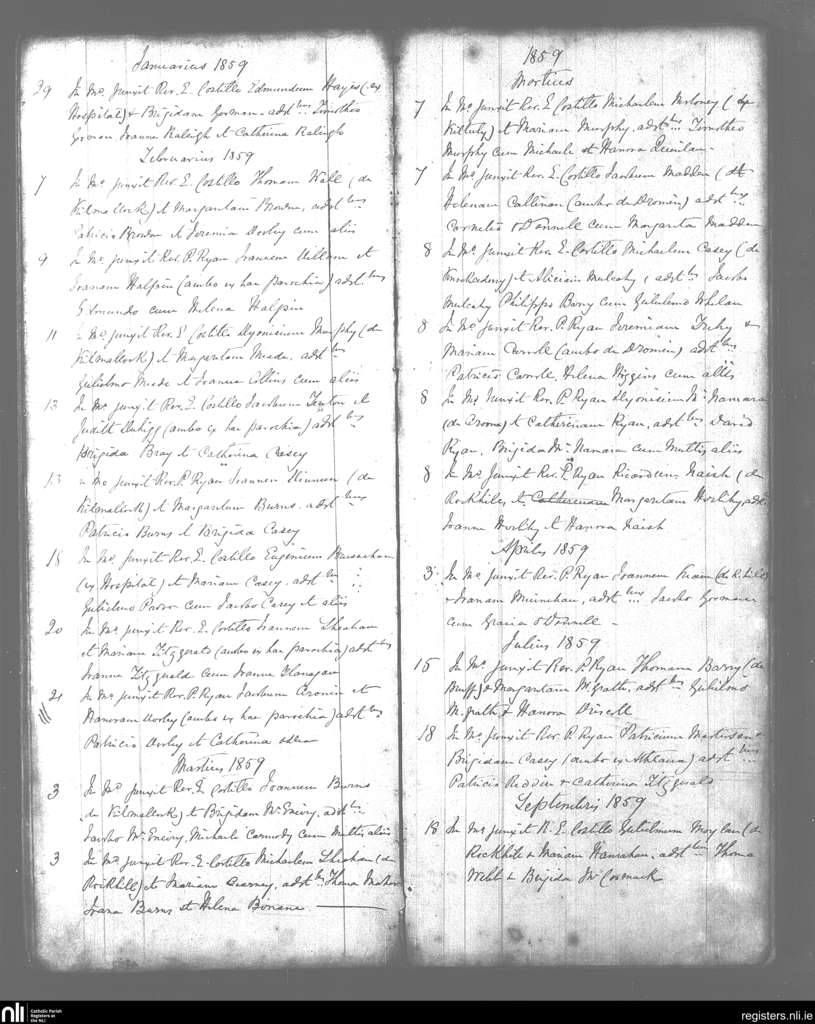 Januarius 1859
29 In Mo junxit Rev. E. Costello Edmundum Hayes (ex
Hospital) & Brigidam Gorman. adst tibus Timotheo
Gorman Joanne Raleigh et Catherina Raleigh
Februarius 1859
7 In Mo junxit Rev E. Costello Thomam Hall (de
Kilmallock) et Margaritam Browne, adst ibus
Patricio Browne et Jeremia Dooley cum aliis
9 In Mo junxit Rev. P. Ryan Joannem et
Joannam Halpin (ambo ex hac parochia) adst. ibus
Edmundo cum Helena Halpin
11 In Mo junxit Rev. E Costello Dyonisium Murphy (de
Kilmallock) et Margaritam Meade. adst ibus
Gulielmo Meade et Joanna Collins cum aliis
13 In Mo junxit Rev. E. Costello Jacobum Fenton et
Judith (ambo ex hac parochia) adst ibus
Brigida Bray et Catherina Casey
13 In Mo junxit Rev. P. Ryan Joannem (de
Kilmallock) et Margaritam Burns. adst ibus
Patricio Burns et Brigida Casey
18 In Mo junxit Rev. E. Costello Eugenium
(ex Hospital) et Mariam Casey. adst ibus
Gulielmo Power cum Jacobo Casey et aliis
20 In Mo junxit Rev. E. Costello Joannem Sheahan
et Mariam Fitzgerald (ambo ex hac parochia) adst ibus
Joanne Fitzgerald cum Joanne Flanagan
21 In Mo junxit Rev. P. Ryan Jacobum Cronin et
Hanoram Dooley (ambo ex hac parochia) adst ibus
Patricio Dooley et Catherina
Martius 1859
3 In Mo junxit Rev. E. Costello Joannem Burns
(de Kilmallock) et Brigidam McEneiry. adst ibus
Jacobo McEneiry, Michaele Carmody cum multis aliis
3 In Mo junxit Rev. E. Costello Michaelem Sheahan (de
Rockhill) et Mariam Kearney, adst ibus Thoma Meehan
Joana Burns et Helena Binane
1859
Martius
7 In Mo junxit Rev. E Costello Michaelem Moloney (ex
) et Mariam Murphy. adst ibus Timotheo
Murphy cum Michaele et Hanora Quinlan
7 In Mo junxit Rev. E. Costello Jacobum Madden et
Helenam Callinan (ambo de Dromin) adst ibus
Cornelio O'Donnell cum Margarita Madden
8 In Mo junxit Rev. E. Costello Michaelem Casey (de
) et Aliciam Mulcahy, adst ibus Jacobo
Mulcahy Philippo Barry cum Gulielmo Whelan
8 In Mo junxit Rev. P. Ryan Jeremiam &
Mariam Carroll (ambo de Dromin) adst ibus
Patricio Carroll, Helena Higgins cum aliis
8 In Mo junxit Rev. P. Ryan Dyonisium McNamara
(de Dromin) et Catherinam Ryan, adst ibus David
Ryan, Brigida McNamara cum multis aliis
8 In Mo junxit Rev. P. Ryan Ricardum Naish (de
Rockhill) et Catherinam Margaritam Worthy, adst.
Joanne Worthy et Hanora Naish
Aprilis 1859
3 In Mo junxit Rev. P. Ryan Joannem (de R. hill)
& Joanam Minnehan, adst ibus Jacobo Gorman
cum Gracia O'Donnell
Julius 1859
15 In Mo junxit Rev. P. Ryan Thomam Barry (de
Bruff) & Margaritam McGrath, adst ibus Gulielmo
McGrath & Hanora Driscoll
18 In Mo junxit Rev. P. Ryan Patricium &
Brigidam Casey (ambo ex Athlacca) adst ibus
Patricio Reddin & Catherina Fitzgerald
Septembris 1859
18 In Mo junxit R. E. Costello Gulielmum Moylan (de
Rockhill & Mariam Hanrahan, adst ibus Thoma
Webb & Brigida McCormack
nli
Catholic Parish
Registers at
the NLI
registers.nli.ie